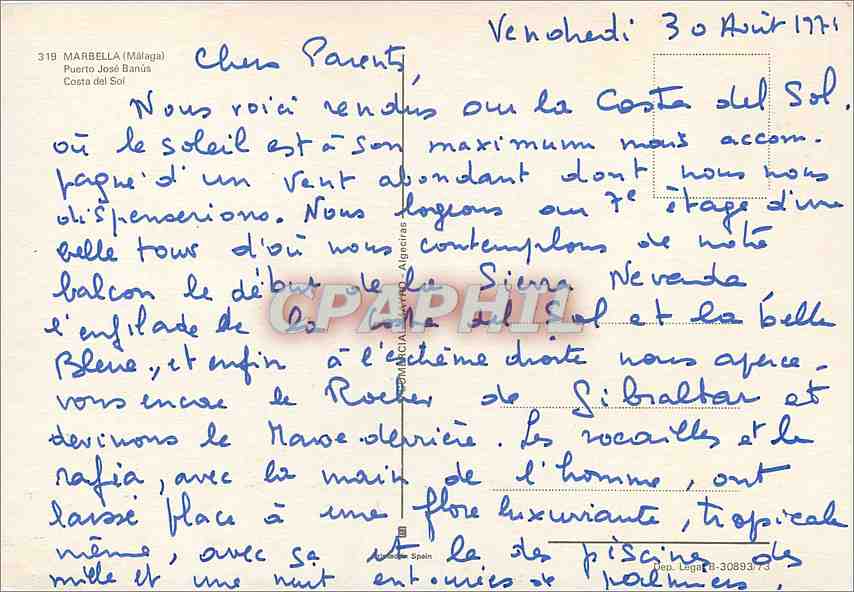 Vendredi 30 Août 1971
319 MARBELLA (Málaga)
Puerto José Banús
Costa del Sol
Chers Parents,
Nous voici rendus sur la Costa del Sol.
où le soleil est à son maximum mais accom-
pagné d'un vent abondant dont nous nous
dispenserions. Nous logeons au 7e étage d'une
belle tour d'où nous contemplons de notre
balcon le début de la Sierra Nevada,
l'enfilade de la Costa del Sol et la belle
Bleue, et enfin à l'extrême droite nous aperce-
vons encore le Rocher de Gibraltar et
devinons le Maroc derrière. Les rocailles et le
rafia, avec la main de l'homme, ont
laissé place à une flore luxuriante, tropicale
même, avec sa et la des piscines des
mille et une nuit entourées de palmiers.
COMERCIAL Algeciras
Printed in Spain
Dep. Legal B-30893/73
CPAPHIL